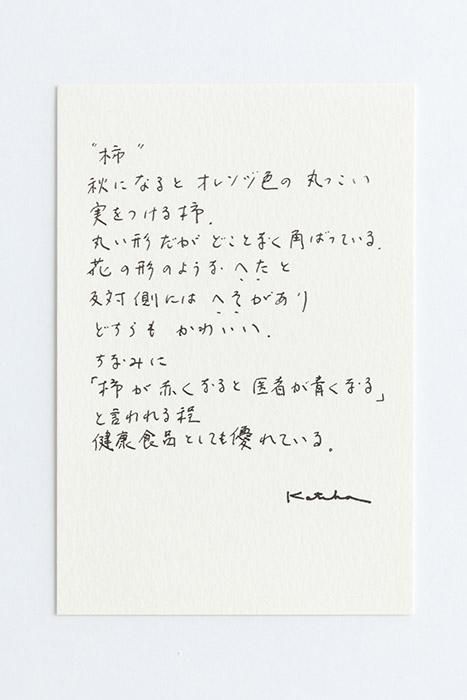 "柿"
秋になると オレンヅ色の 丸っこい
実をつける柿.
丸い形だが どことなく角ばっている.
花の形のような へたと
反対側には へそがあり
どちらも かわいい.
ちなみに
「柿が赤くなると 医者が青くなる」
と言われる程
健康食品としても優れている.